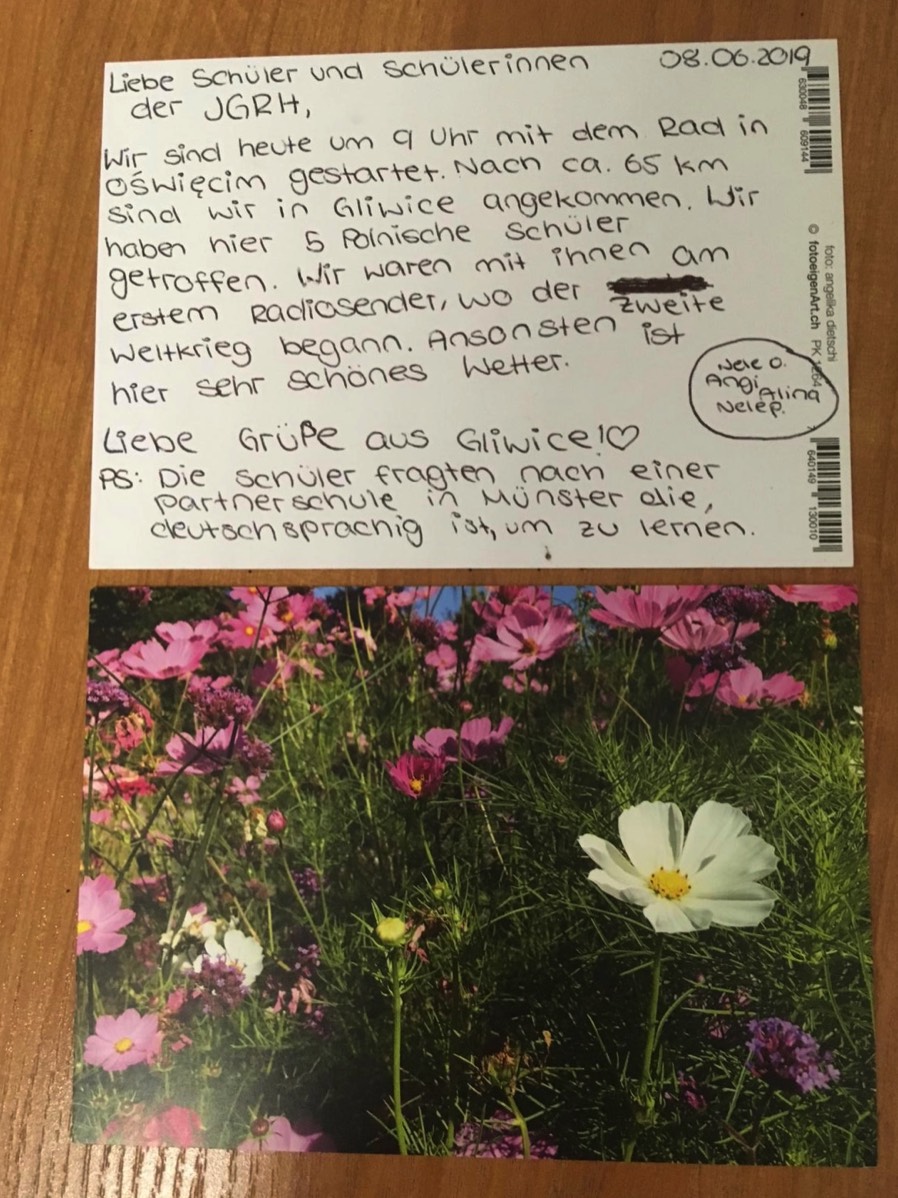 Liebe Schüler und Schülerinnen 08.06.2019
der JGRH,
Wir sind heute um 9 Uhr mit dem Rad in
Oświęcim gestartet. Nach ca. 65 km
sind wir in Gliwice angekommen. Wir
haben hier 5 Polnische Schüler
getroffen. Wir waren mit ihnen am
erstem Radiosender, wo der zweite
Weltkrieg begann. Ansonsten ist
hier sehr schönes Wetter.
Nele O.
Angi Alina
Nele P.
Liebe Grüße aus Gliwice!♡
PS: Die Schüler fragten nach einer
Partnerschule in Münster die,
deutschsprachig ist, um zu lernen.
630048 609144
foto: angelika dietschi
© fotoeigenArt.ch PK
640149 130010